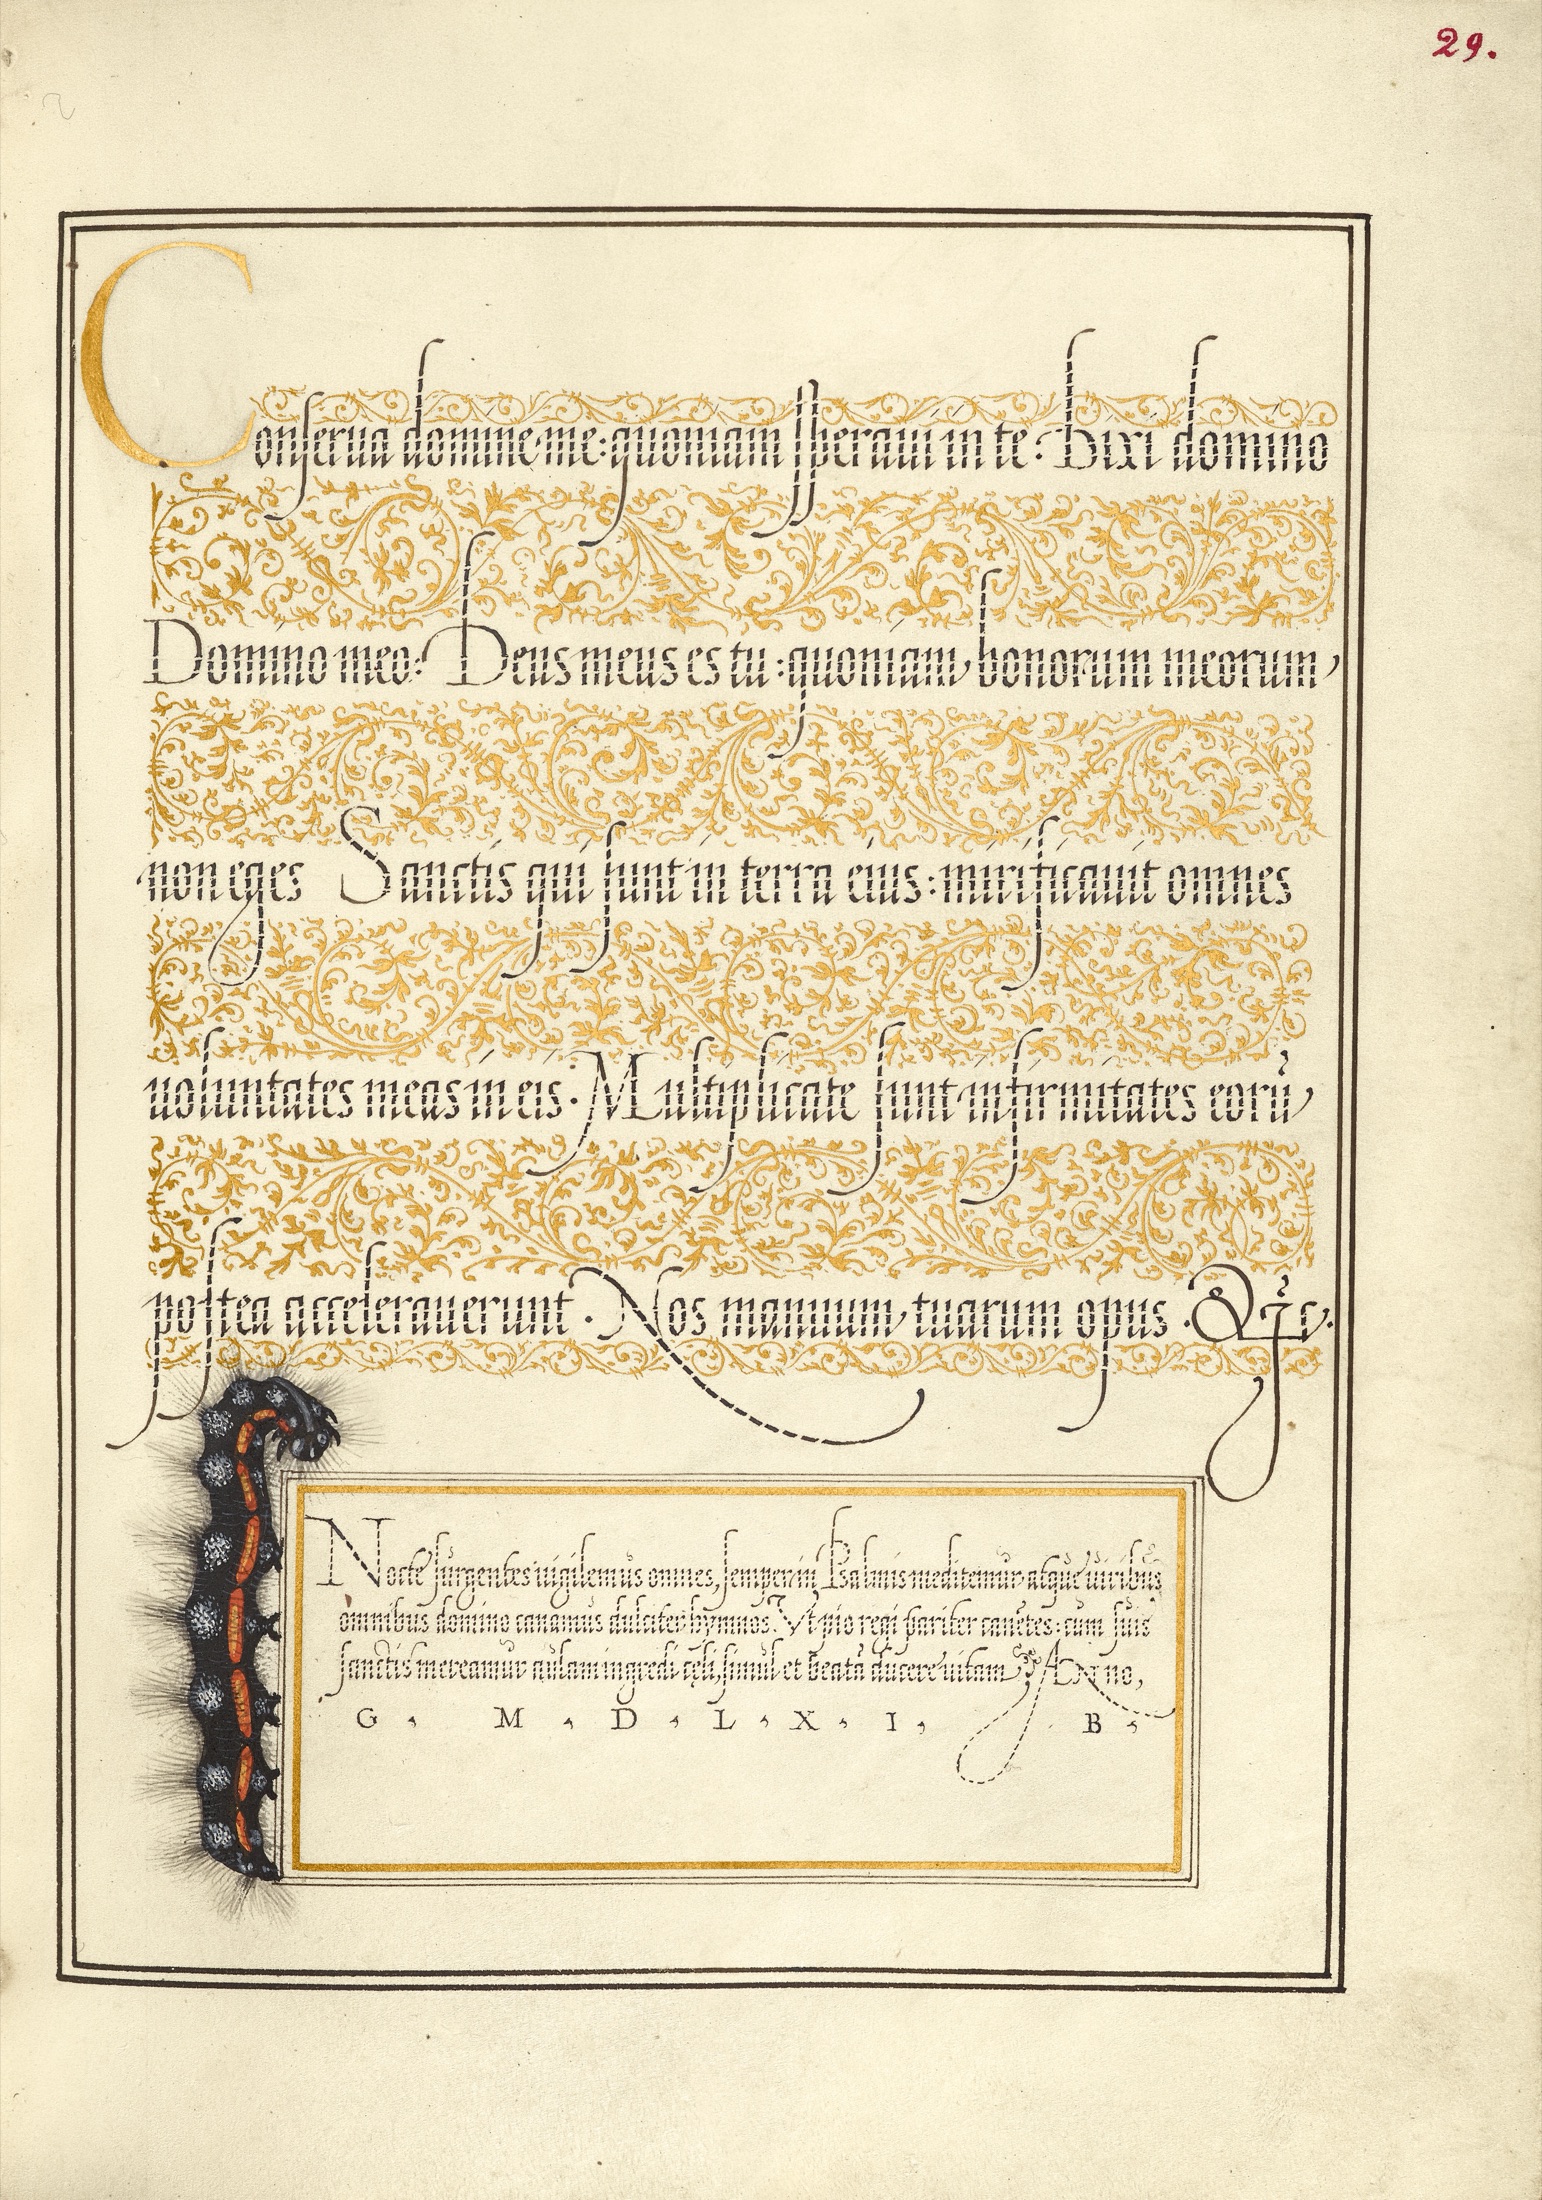 29.
Conserua domine me: quoniam speraui in te. Dixi domino
Domino meo: Deus meus es tu: quoniam bonorum meorum
non eges Sanctis qui sunt in terra eius: mirificauit omnes
uoluntates meas in eis. Multiplicate sunt infirmitates eorū
postea accelerauerunt. Nos manuum tuarum opus.
Nocte surgentes uigilemus omnes, semper in Psalmis meditemur atque uiribus
omnibus domino canamus dulciter hymnos. Vt pio regi pariter canētes: cum suis
sanctis mereamur aulam ingredi cęli, simul et beatā ducere uitam Anno,
G, M, D, L, X, I, B,